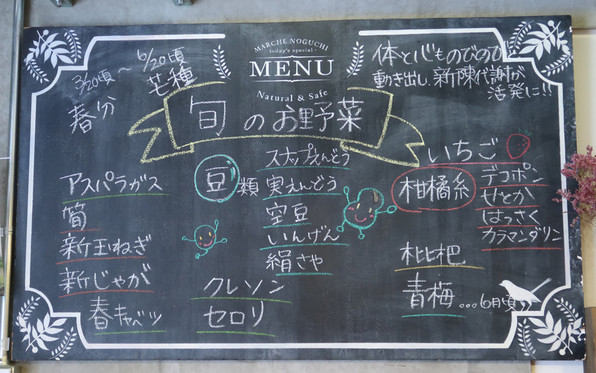 MARCHE NOGUCHI
today's special
MENU
Natural & Safe
3/20頃〜6/20頃
春分 芒種
体と心ものびのび
動き出し、新陳代謝が
活発に!!
旬のお野菜
アスパラガス
筍
新玉ねぎ
新じゃが
春キャベツ
豆類
スナップえんどう
実えんどう
空豆
いんげん
絹さや
クレソン
セロリ
いちご
柑橘系
デコポン
せとか
はっさく
カラマンダリン
枇杷
青梅...6月頃